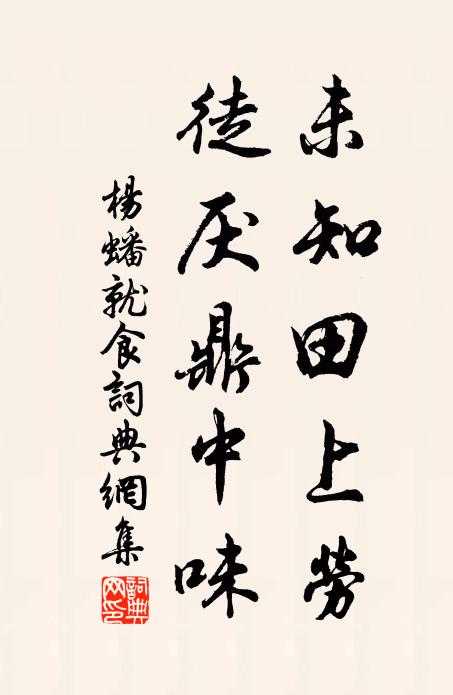 未知田上勞
徒厌鼎中味
楊蟠就食詞典網集
詞典网印